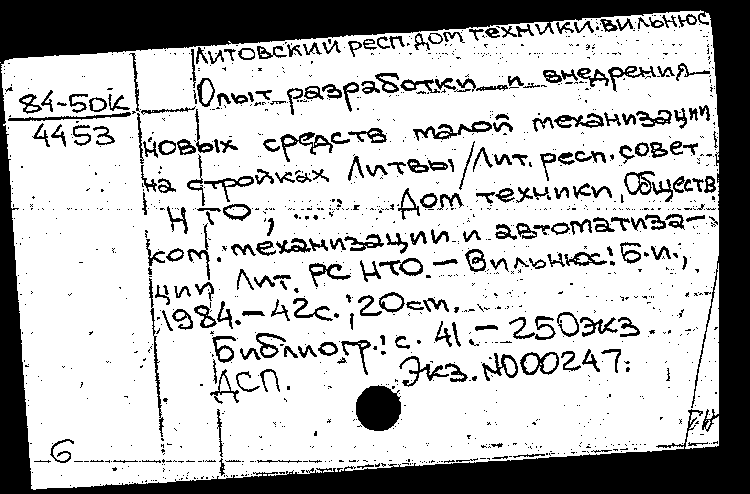 Литовский респ. дом техники. Вильнюс
84-5ДК
4453
Опыт разработки и внедрения
новых средств малой механизации
на стройках Литвы / Лит. респ. совет
НТО, ... Дом техники, Обществ.
ком. механизации и автоматиза-
ции Лит. РС НТО. - Вильнюс: Б.и.,
1984. - 42с.; 20см.
Библиогр.: с. 41. - 250экз
ДСП. Экз. N000247.
6